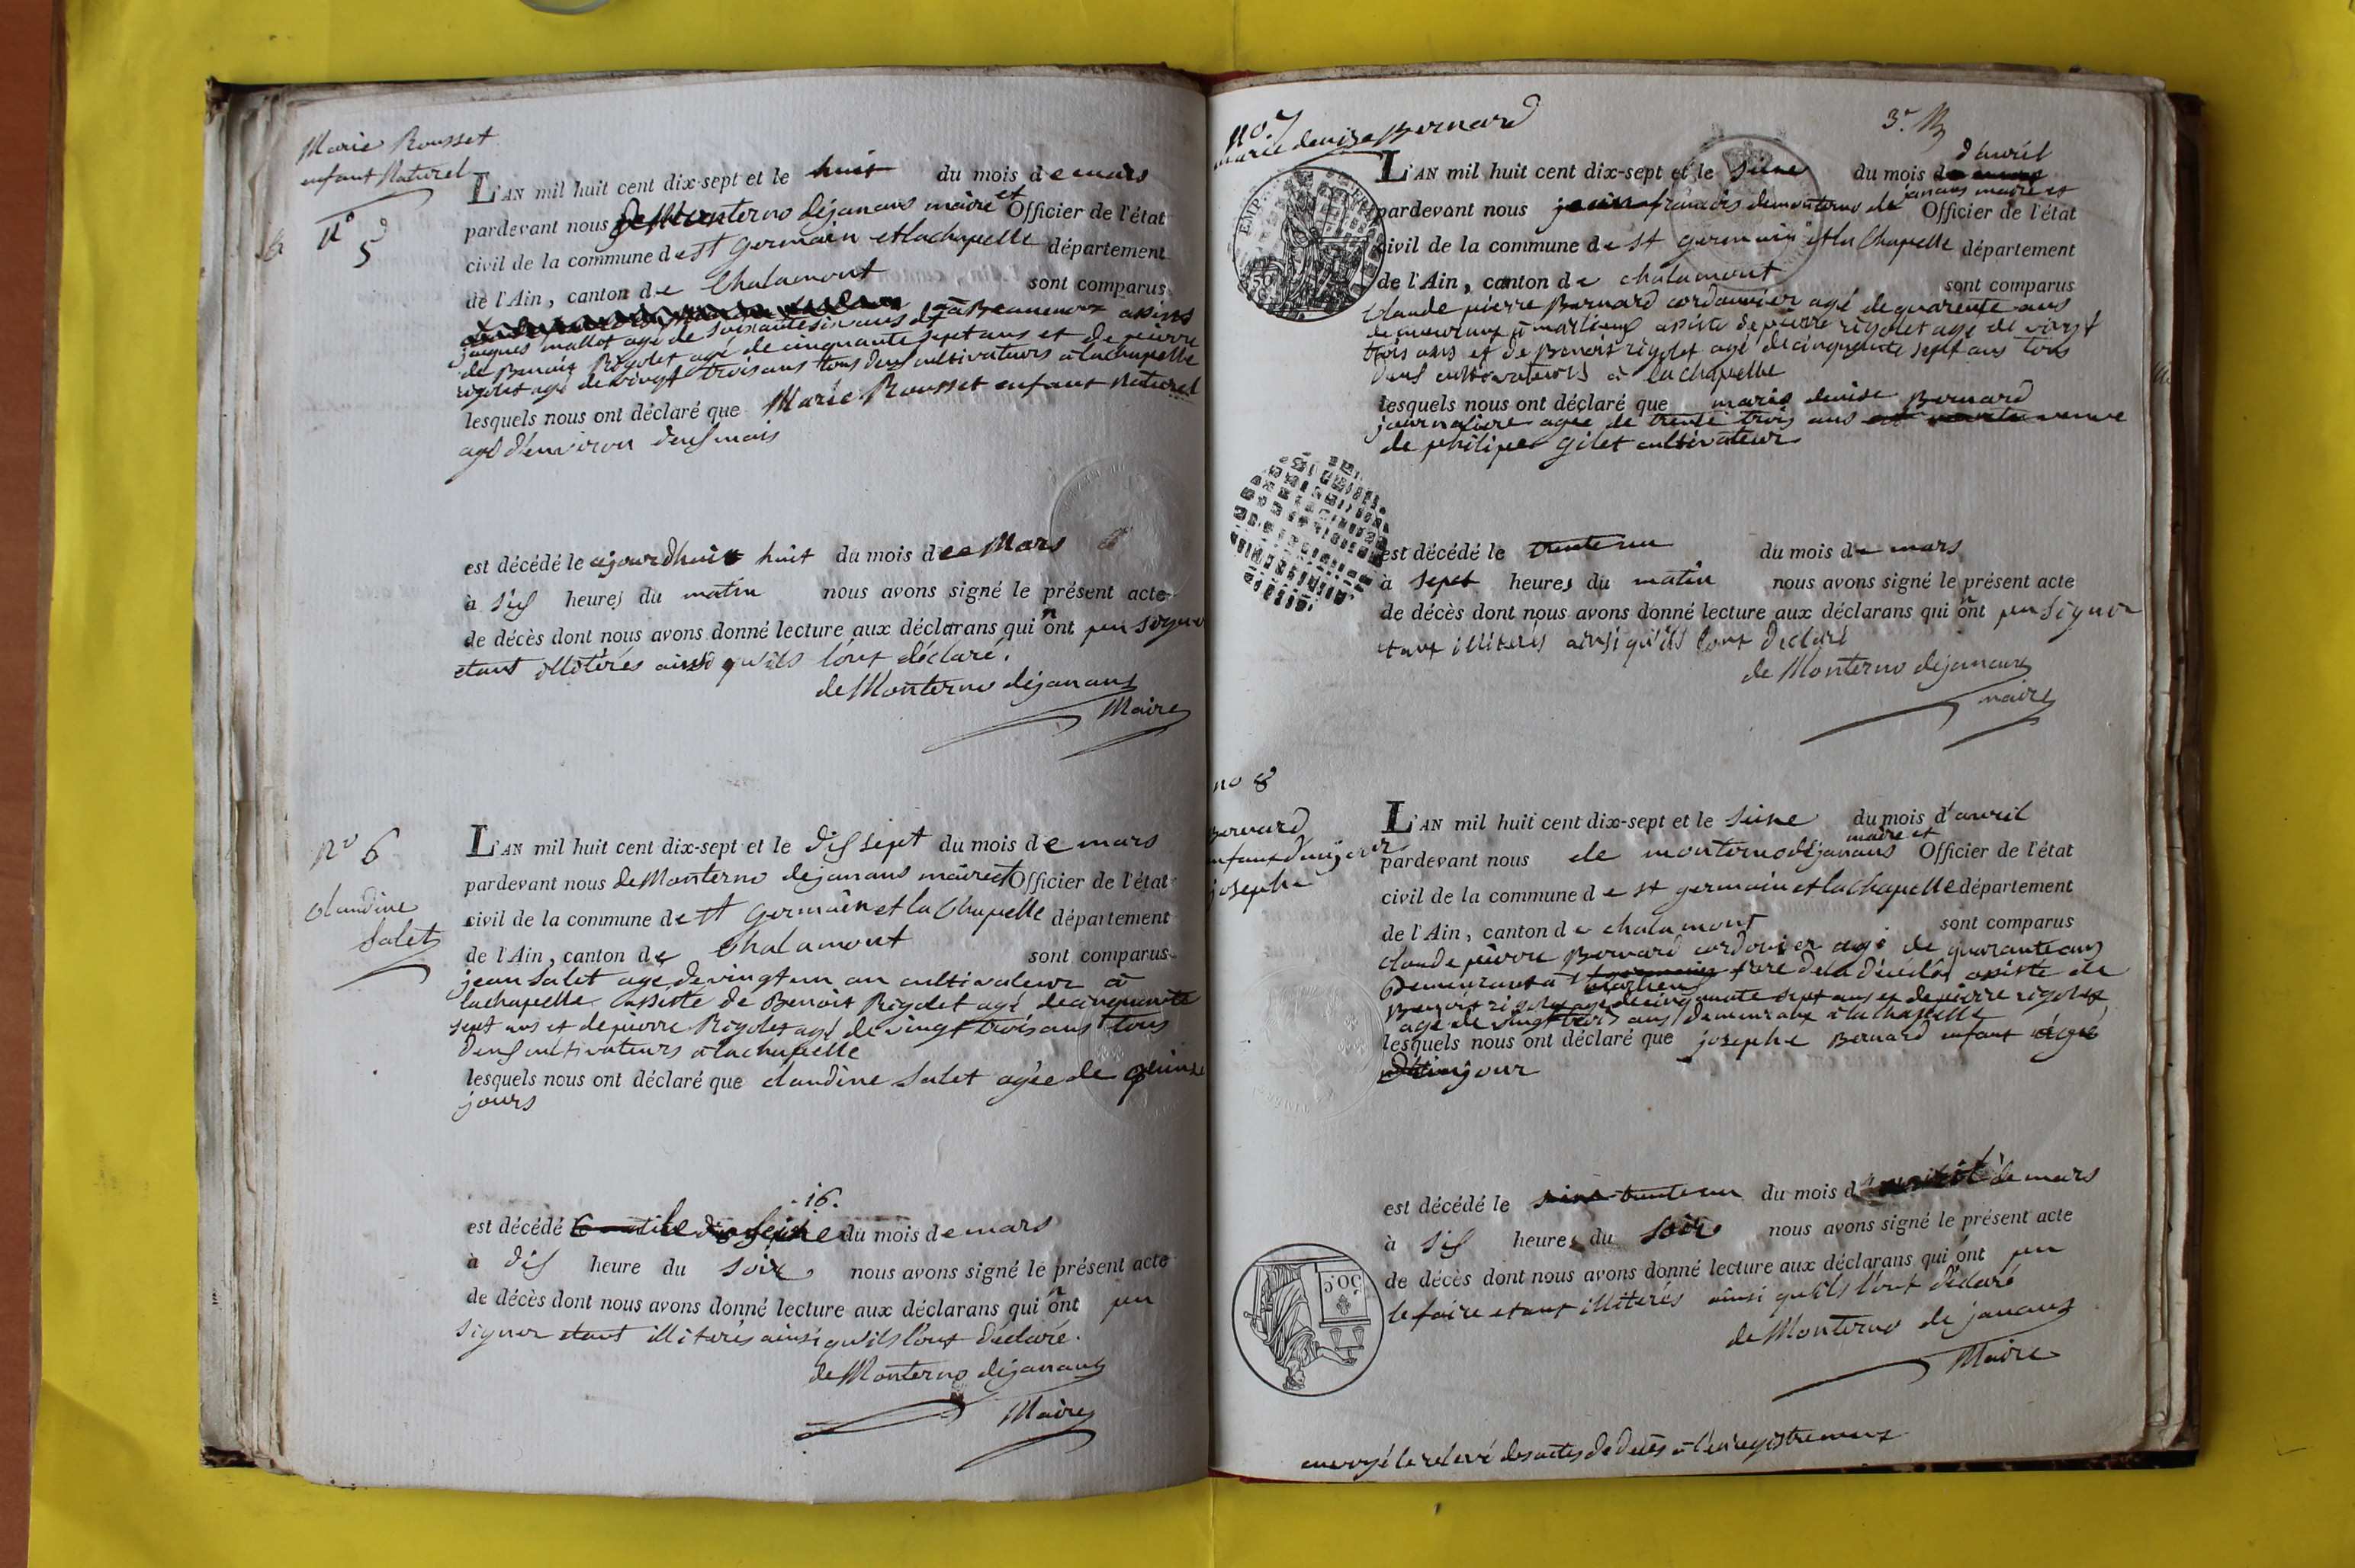 Marie Rousset
enfant Naturel
n° 5
L'AN mil huit cent dix-sept et le huit du mois de mars
pardevant nous de Monterno dejanans maire et Officier de l'état
civil de la commune de st germain et lachapelle département
de l'Ain, canton de Chalamont sont comparus
jaques mallet agé de soixante six ans à Beaumont assiss
de Benoit Rigolet agé de cinquante sept ans et de pierre
rigolet agé de vingt trois ans tous deux cultivateurs a lachapelle
lesquels nous ont déclaré que Marie Rousset enfant naturel
agé d'environ deux mois
est décédé le ajourdhuit huit du mois de Mars
à six heures du matin nous avons signé le présent acte
de décès dont nous avons donné lecture aux déclarans qui nont pu signer
etant illitérés ainsi qu'ils l'ont déclaré.
de Monterno dejanans
Maire
n° 6
claudine
Salet
L'AN mil huit cent dix-sept et le dix sept du mois de mars
pardevant nous de Monterno dejanans maire et Officier de l'état
civil de la commune de st germain et la Chapelle département
de l'Ain, canton de Chalamont sont comparus
jean Salet age de vingt un an cultivateur à
lachapelle assiste de Benoit Rigolet agé de cinquante
sept ans et de pierre Rigolet agé de vingt trois ans tous
deux cultivateurs a lachapelle
lesquels nous ont déclaré que claudine Salet agée de quinze
jours
16.
est décédé le seize du mois de mars
à dix heure du soir nous avons signé le présent acte
de décès dont nous avons donné lecture aux déclarans qui nont pu
signer etant illiterés ainsi qu'ils l'ont déclaré.
de Monterno dejanans
Maire
no. 7
marie denise Bernard
3e
L'AN mil huit cent dix-sept et le seise du mois d'avril
pardevant nous jean françois demonterno de janans maire et Officier de l'état
civil de la commune de st germain et la Chapelle département
de l'Ain, canton de chalamont sont comparus
claude pierre Bernard cordonnier agé de quarente ans
demeurant à marlieux assiste de pierre rigolet agé de vingt
trois ans et de Benoit rigolet agé de cinquante sept ans tous
deux cultivateurs à lachapelle
lesquels nous ont déclaré que marie denise Bernard
journaliere agée de trente trois ans veuve
de philipe gilet cultivateur
est décédé le trente un du mois de mars
à sept heures du matin nous avons signé le présent acte
de décès dont nous avons donné lecture aux déclarans qui nont pu signer
etant illiterés ainsi qu'ils l'ont declaré
de Monterno dejanans
maire
no 8
Bernard
enfant d'un jour
josephe
L'AN mil huit cent dix-sept et le seise du mois d'avril
pardevant nous de monterno dejanans maire et Officier de l'état
civil de la commune de st germain et la chapelle département
de l'Ain, canton de chalamont sont comparus
claude pierre Bernard cordonier agé de quarante ans
demeurant a marlieux frere dela décédée assiste de
Benoit rigolet age de cinquante sept ans et de pierre rigolet
agé de vingt trois ans demeurant a lachapelle
lesquels nous ont déclaré que josephe Bernard enfant agé
d'un jour
est décédé le trente un du mois de mars
à six heures du soir nous avons signé le présent acte
de décès dont nous avons donné lecture aux déclarans qui nont pu
le faire etant illiterés ainsi qu'ils l'ont déclaré
de Monterno de janans
Maire
50 C
envoyé le relevé des actes de décès a l'enregistrement